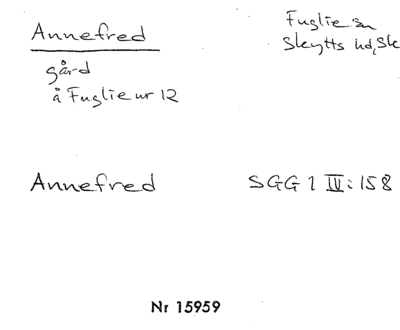 Annefred
Fuglie sn
Skytts hd, Sk
gård
å Fuglie nr 12
Annefred
SGG 1 IV:158
Nr 15959